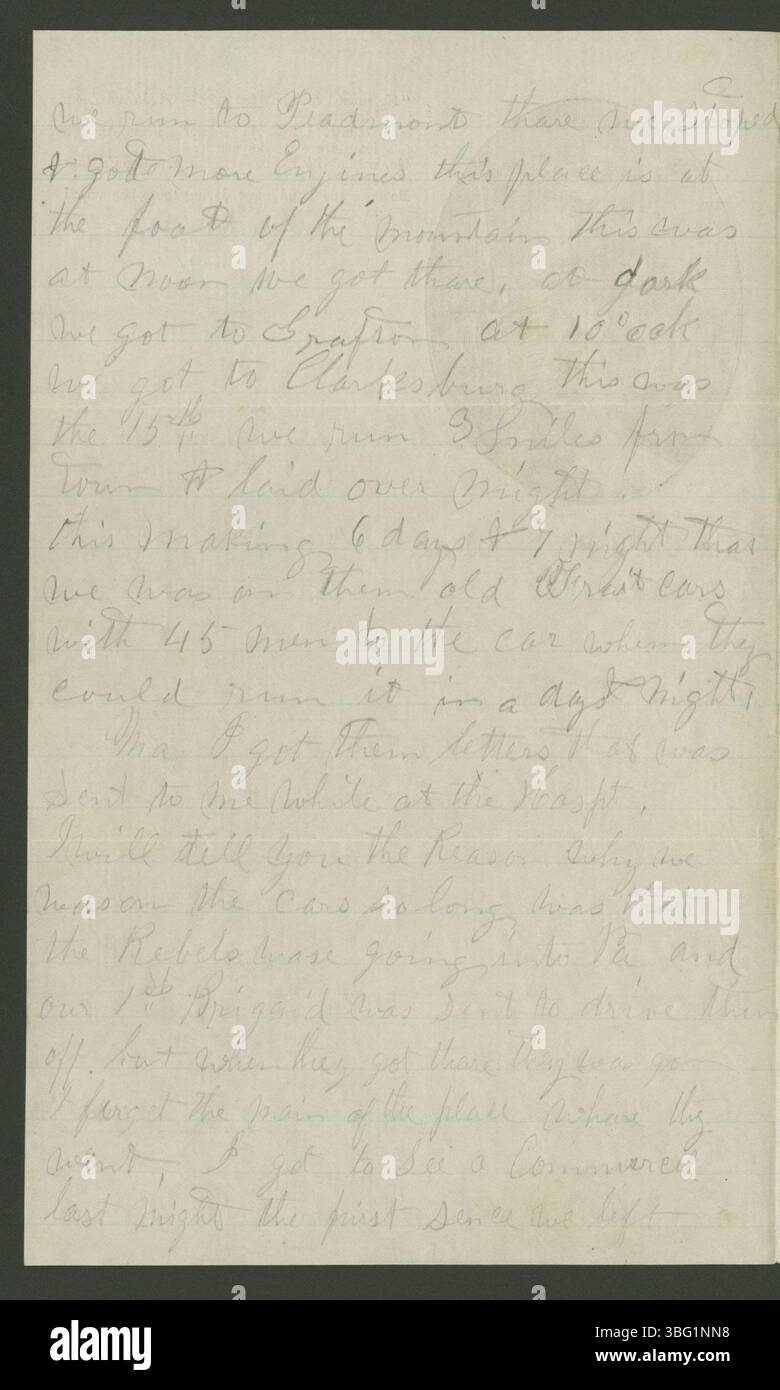 we run to Peadmont thare we stoped
& got more Engines this place is at
the foot of the mountain this was
at noon we got thare, at dark
we got to Grafton at 10 o'
we got to Clarksburg this was
the 15th we run 3 miles from
town & laid over night.
this making 6 days & 7 night that
we was on them old cars
with 45 men to the car when they
could run it in a day & night,
Ma I got them letters that was
sent to me while at the Haspt.
I will tell you the Reason why we
was on the cars so long was that
the Rebels wase going into Pa and
our 1st Brigaid was sent to drive them
off, but when they got thare they was gon
I forget the naim of the place whare thy
went, I got to See a Commerceil
last night the first sence we left
alamy
Image ID: 3BG1NN8
www.alamy.com